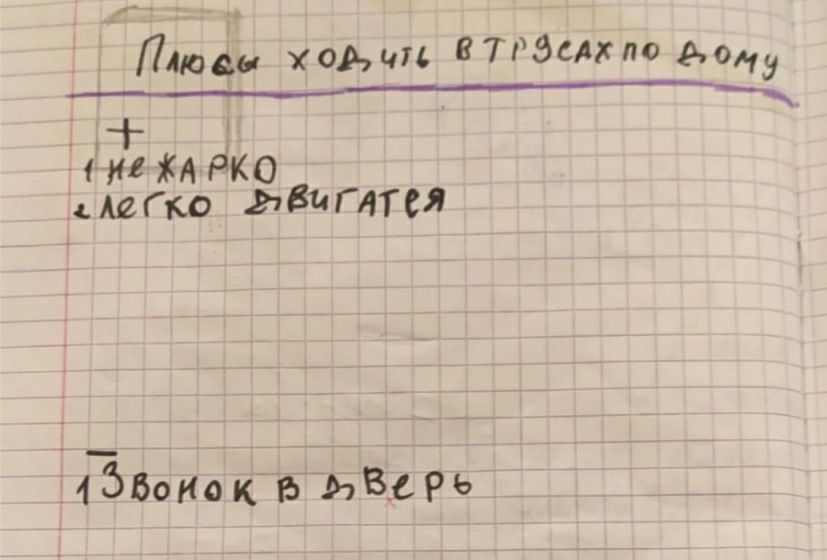 Плюсы ходить в трусах по дому
+
1 не жарко
2 легко двигатся
—
1 Звонок в дверь